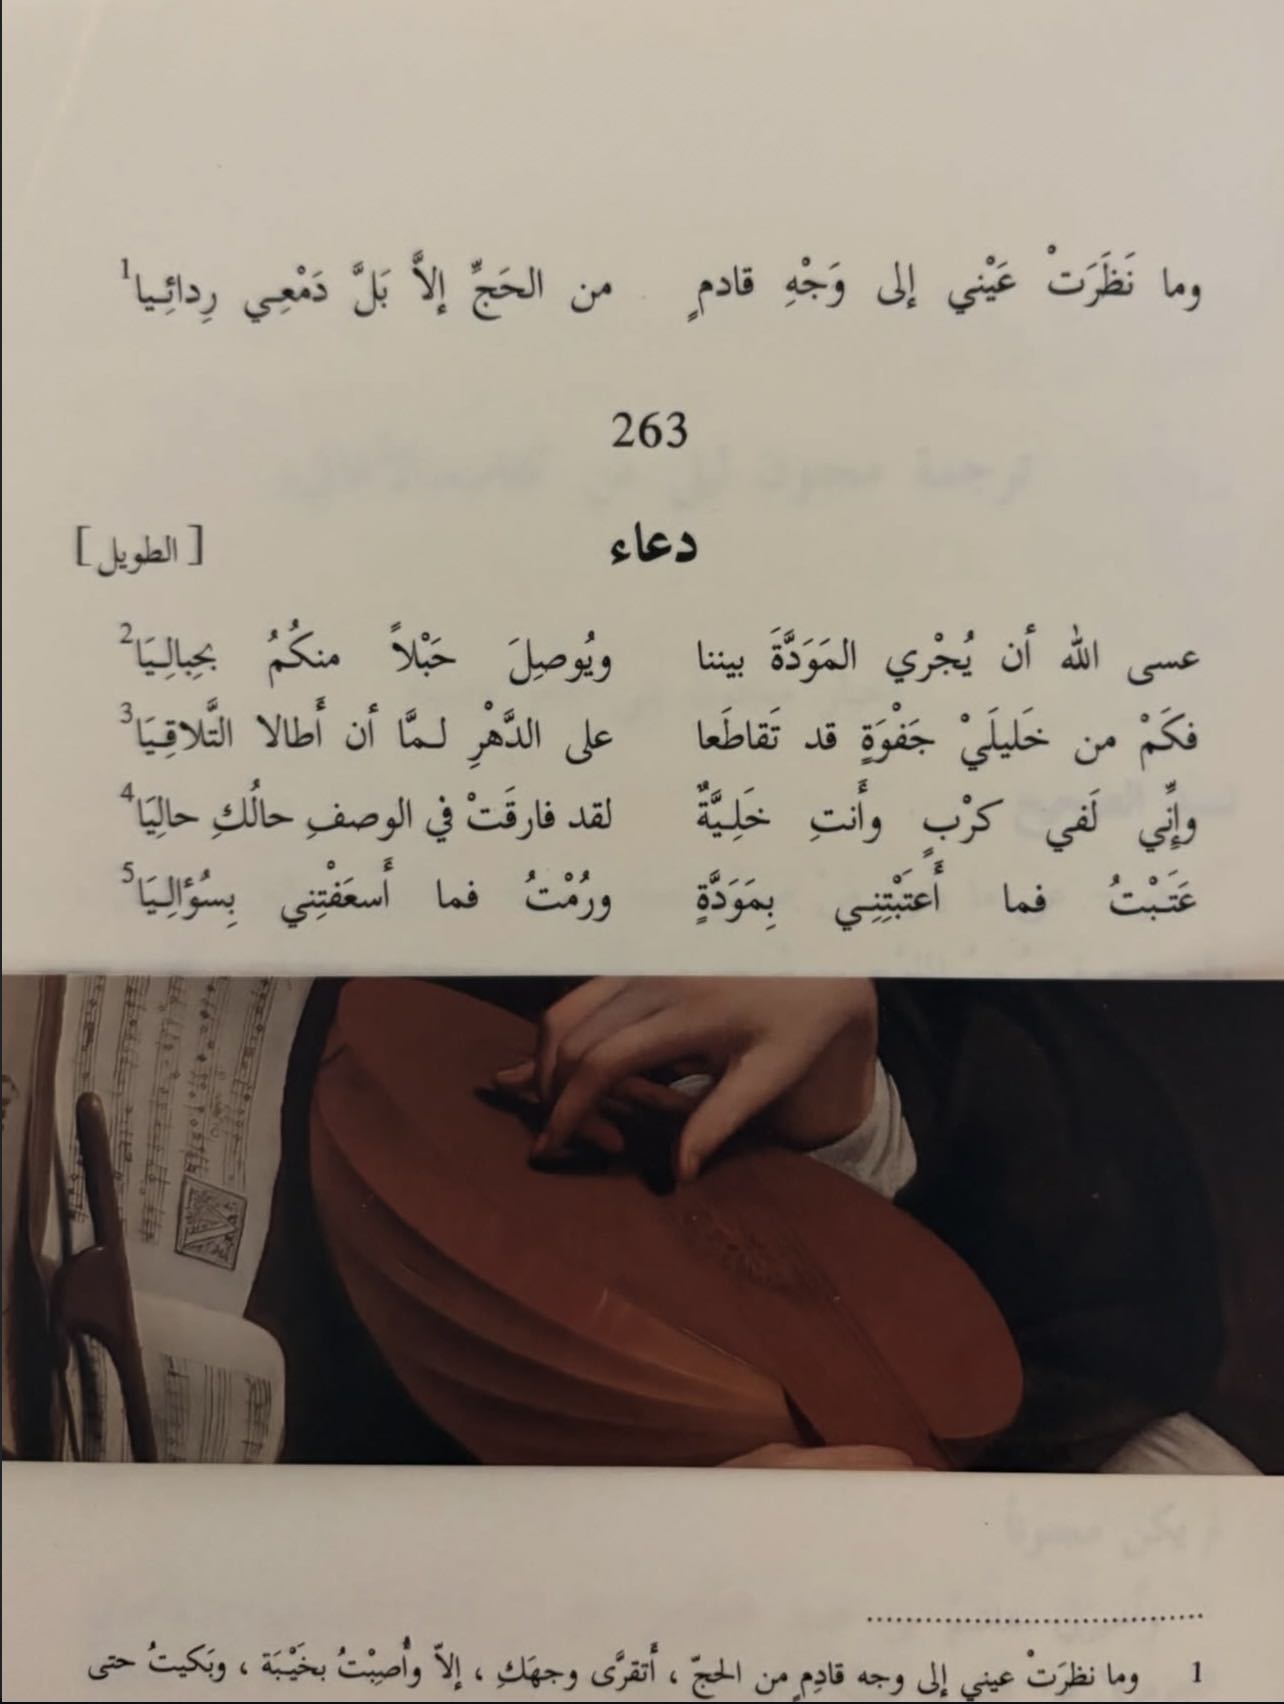 وما نَظَرَتْ عَيْني إلى وَجْهِ قادمٍ من الحَجِّ إلاَّ بَلَّ دَمْعِي رِدائِيا1
263
دعاء [الطويل]
عسى الله أن يُجْري المَوَدَّةَ بيننا ويُوصِلَ حَبْلاً منكُمُ بحِبالِيَا2
فكَمْ من خَليلَيْ جَفْوَةٍ قد تَقاطَعا على الدَّهْرِ لمَّا أن أَطالا التَّلاقِيَا3
وإِنِّي لَفي كرْبٍ وأَنتِ خَلِيَّةٌ لقد فارقَتْ في الوصفِ حالُكِ حالِيَا4
عَتَبْتُ فما أَعتَبْتِنِي بِمَوَدَّةٍ ورُمْتُ فما أَسعَفْتِني بِسُؤالِيَا5
1 وما نظرَتْ عيني إلى وجه قادِمٍ من الحجّ ، أَتقرَّى وجهَكِ ، إلاّ وأُصِبْتُ بخَيْبَة ، وبَكيتُ حتى